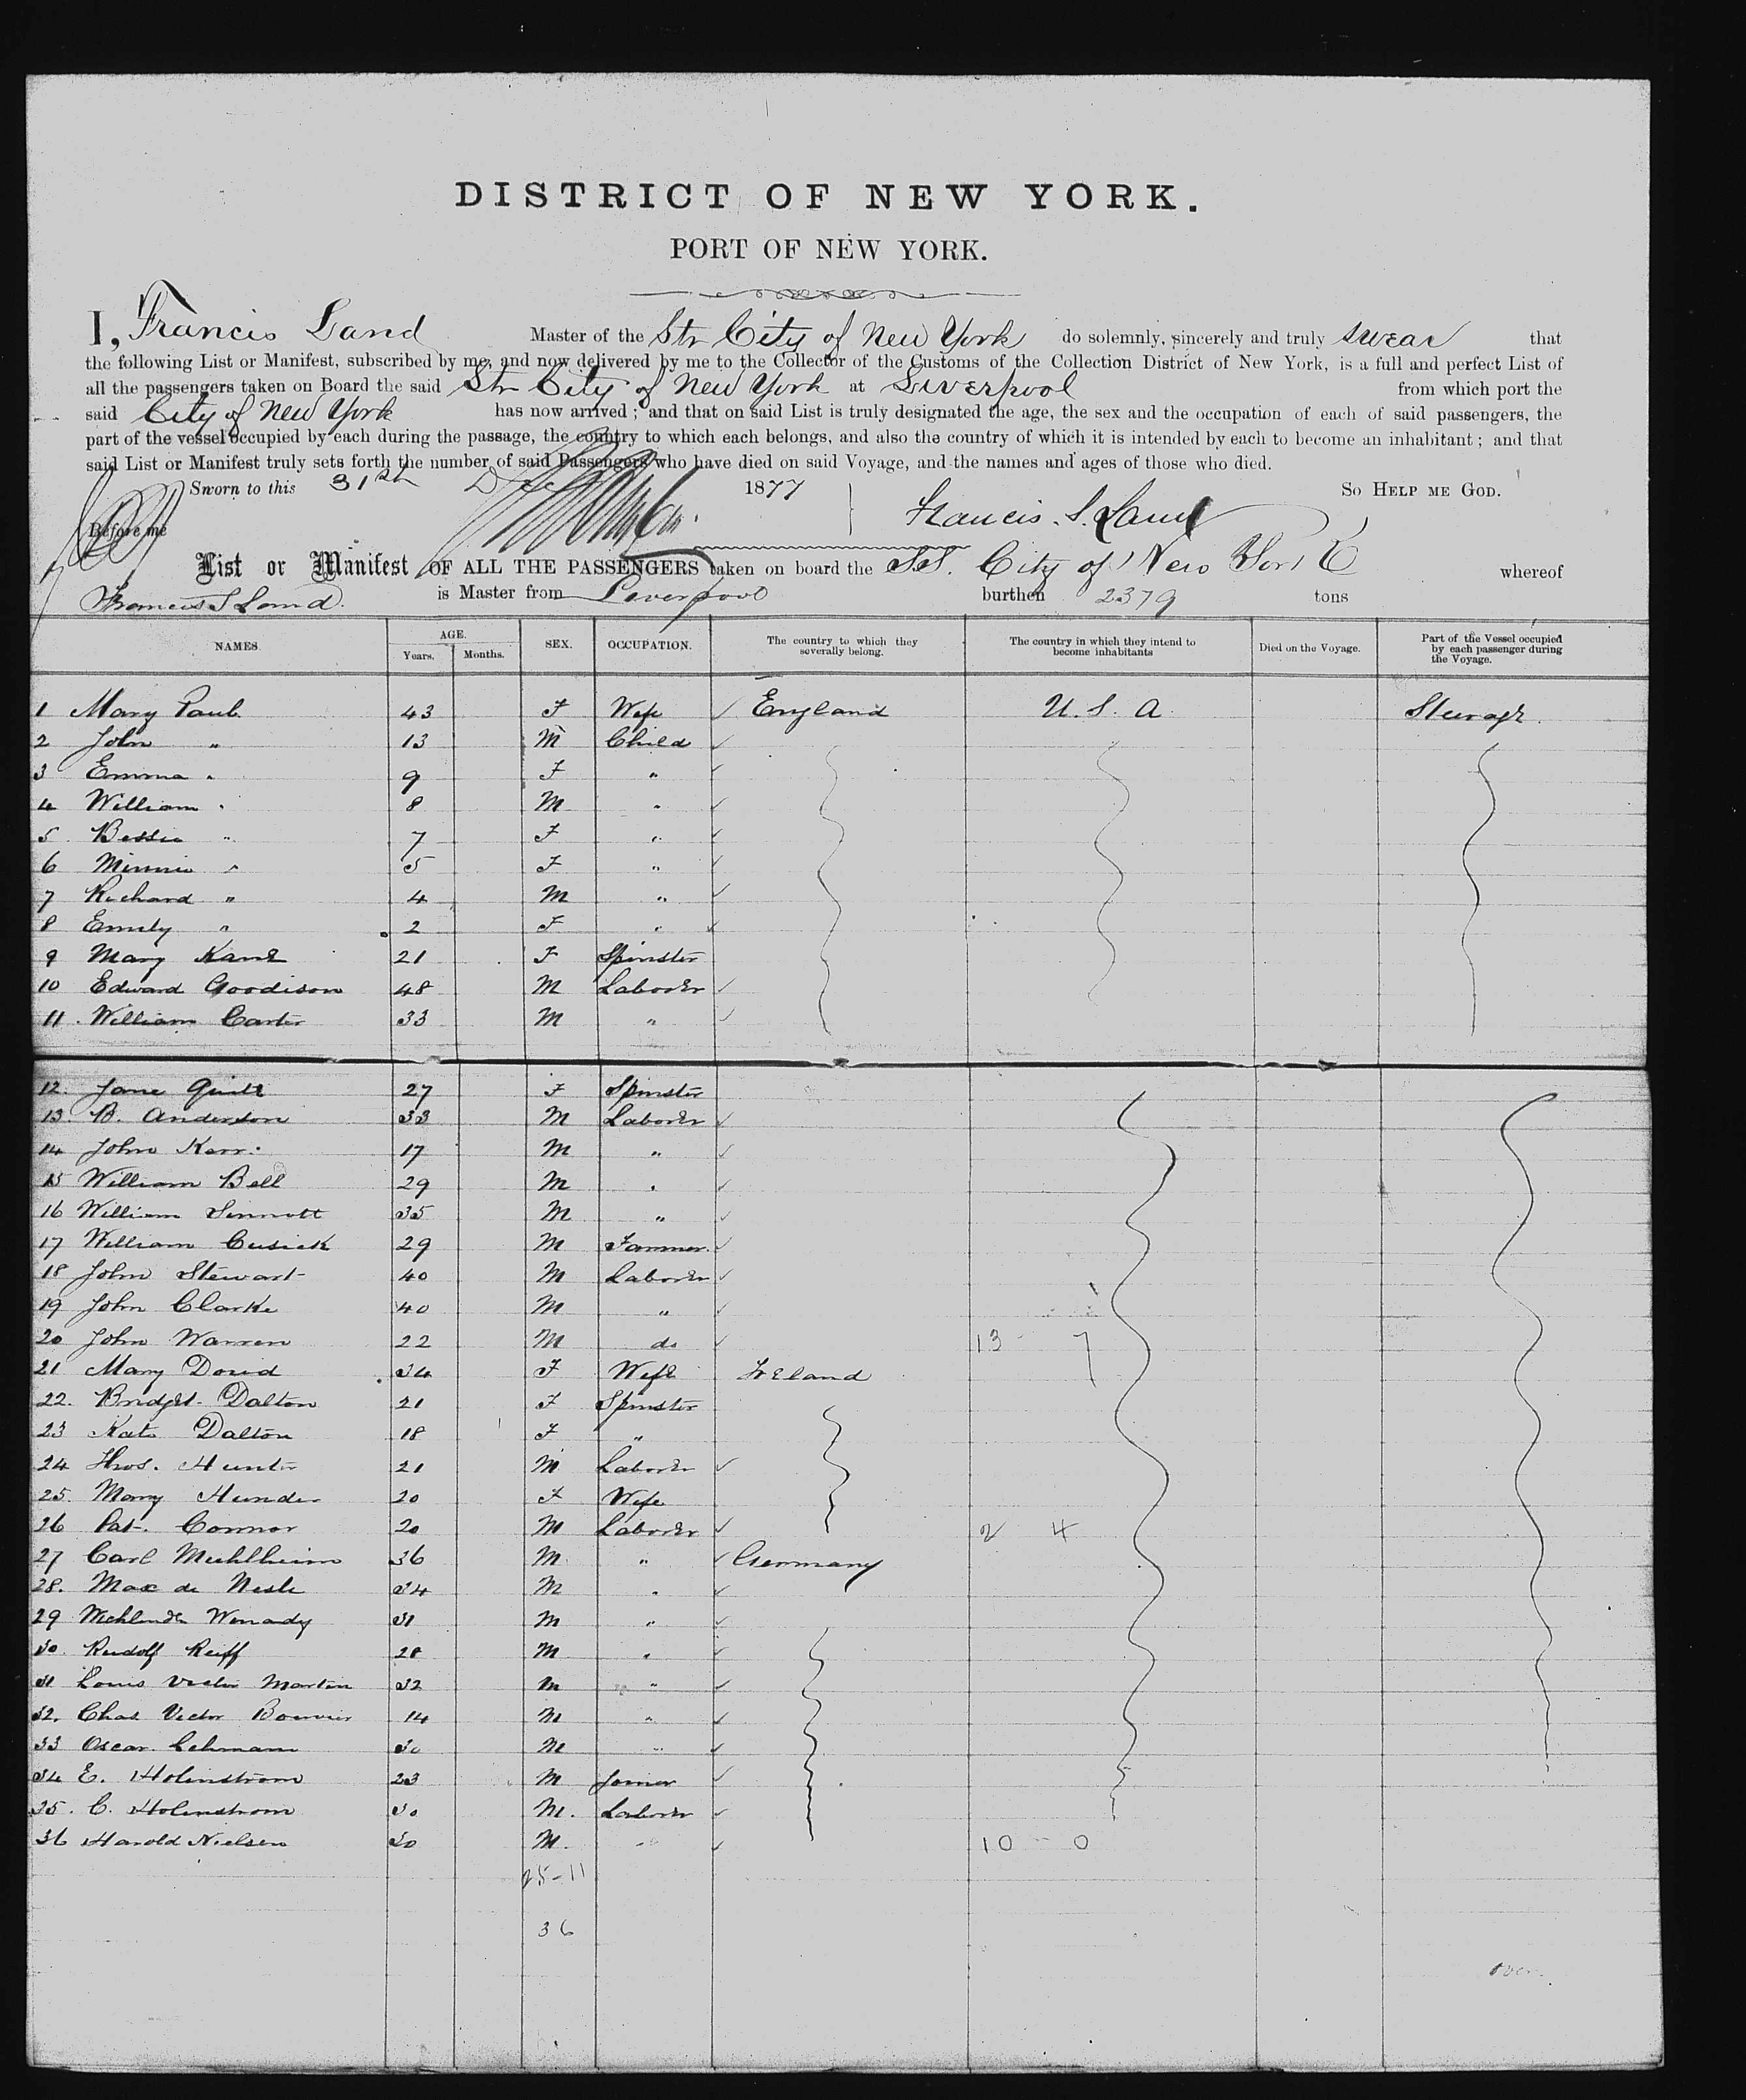 DISTRICT OF NEW YORK.
PORT OF NEW YORK.
I, Francis Land Master of the Str City of New York do solemnly, sincerely and truly swear that
the following List or Manifest, subscribed by me, and now delivered by me to the Collector of the Customs of the Collection District of New York, is a full and perfect List of
all the passengers taken on Board the said Str City of New York at Liverpool from which port the
said City of New York has now arrived; and that on said List is truly designated the age, the sex and the occupation of each of said passengers, the
part of the vessel occupied by each during the passage, the country to which each belongs, and also the country of which it is intended by each to become an inhabitant; and that
said List or Manifest truly sets forth the number of said Passengers who have died on said Voyage, and the names and ages of those who died.
Sworn to this 31st Dec 1877 SO HELP ME GOD.
Before me Francis. S. Land
List or Manifest OF ALL THE PASSENGERS taken on board the S.S. City of New York whereof
Francis S Land. is Master from Liverpool burthen 2379 tons
NAMES. AGE. Years. Months. SEX. OCCUPATION. The country to which they severally belong. The country in which they intend to become inhabitants Died on the Voyage. Part of the Vessel occupied by each passenger during the Voyage.
1 Mary Paul 43 F Wife England U. S. A Steerage.
2 John " 13 M Child
3 Emma " 9 F "
4 William " 8 M "
5 Bessie " 7 F "
6 Minnie " 5 F "
7 Richard " 4 M "
8 Emily " 2 F "
9 Mary Kane 21 F Spinster
10 Edward Goodison 48 M Laborer
11. William Carter 33 M "
12. Jane 27 F Spinster
13. B. Anderson 33 M Laborer
14 John Kerr 17 M "
15 William Bell 29 M "
16 William Sinnott 35 M "
17 William Cusick 29 M Farmer
18 John Stewart 40 M Laborer
19 John Clarke 40 M "
20 John Warren 22 M do 13 - 7
21 Mary Dowd 34 F Wife Ireland
22. Bridget Dalton 21 F Spinster
23 Kate Dalton 18 F "
24 Thos. Hunter 21 M Laborer
25. Mary Hunter 20 F Wife
26 Pat. Connor 20 M Laborer 2 4
27 Carl Muhlheim 36 M " Germany
28. Max de Nesle 34 M "
29 31 M "
30. Rudolf Reiff 28 M "
31 Louis Victor Martin 32 M "
32. Chas Victor Bouvier 14 M "
33 Oscar Lehmann 30 M "
34 E. Holmstrom 23 M Joiner
35. C. Holmstrom 30 M. Laborer
36 Harold Nielsen 30 M. " 10 - 0
25-11
36
over.